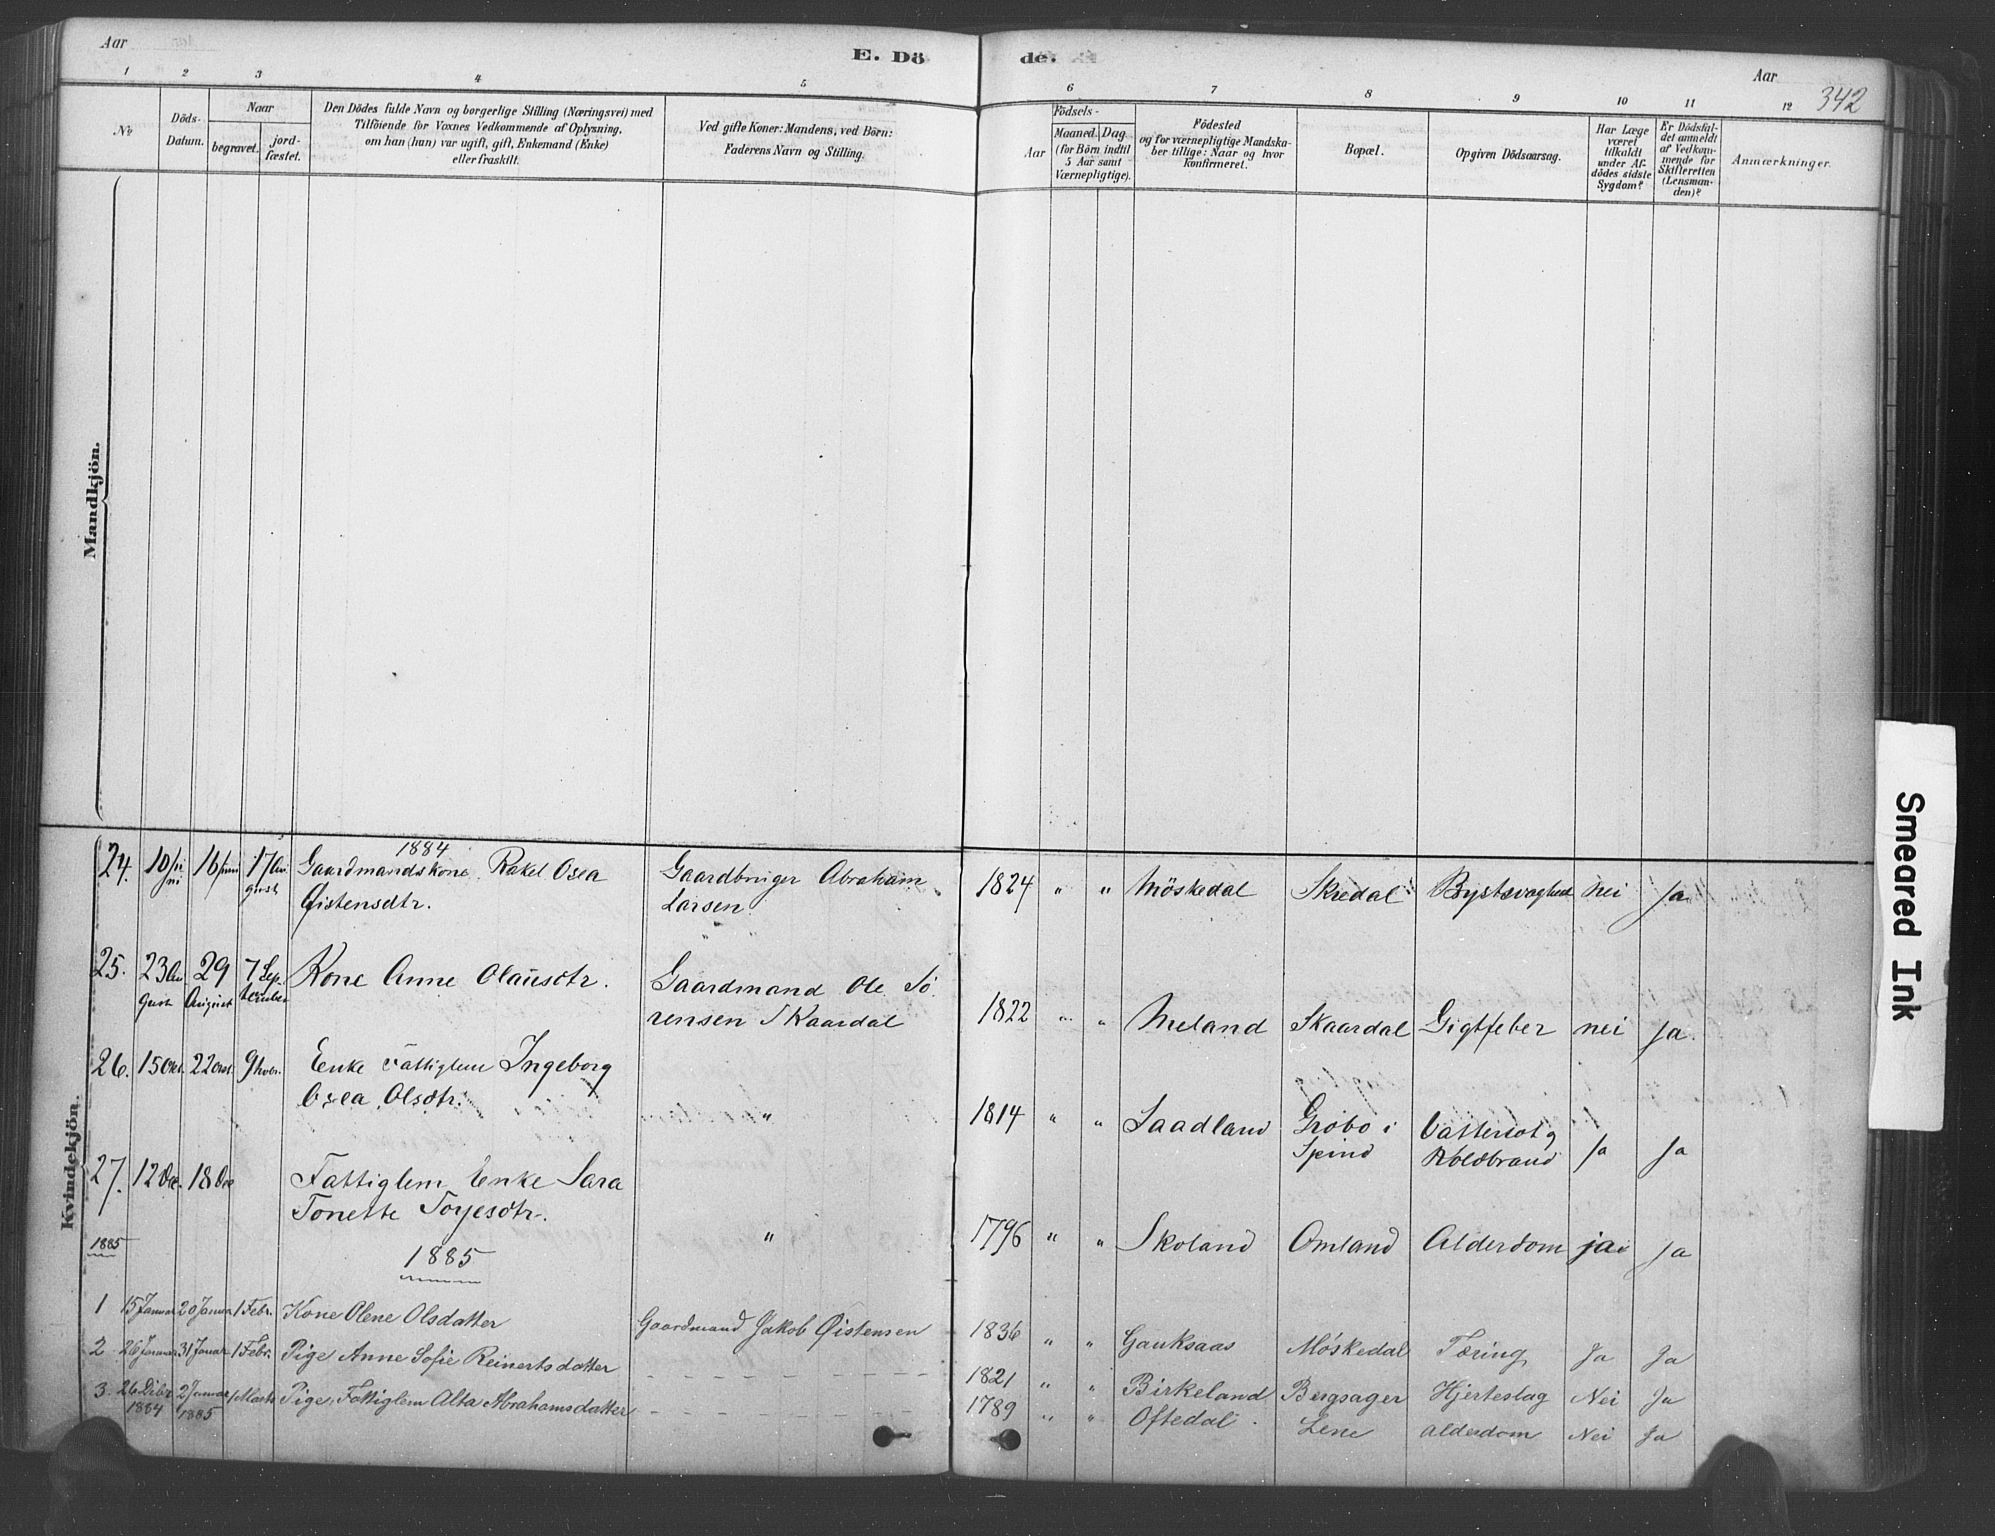 Aar
E. Dö
de.
Aar
342
1 2 3 4 5 6 7 8 9 10 11 12
No
Döds-
Datum.
Naar
begravet.
jord-
fæstet.
Den Dödes fulde Navn og borgerlige Stilling (Næringsvei) med
Tilföiende for Voxnes Vedkommende af Oplysning,
om han (hun) var ugift, gift, Enkemand (Enke)
eller fraskilt.
Ved gifte Koner: Mandens, ved Börn:
Faderens Navn og Stilling.
Födsels-
Aar
Maaned. Dag
(for Börn indtil
5 Aar samt
Værnepligtige).
Födested
og for værnepligtige Mandska-
ber tillige: Naar og hvor
konfirmeret.
Bopæl.
Opgiven Dödsaarsag.
Har Læge
været
tilkaldt
under Af-
dödes sidste
Sygdom?
Er Dödsfal-
det anmeldt
af Vedkom-
mende for
Skifteretten
(Lensman-
den)?
Anmærkninger.
Mandkjön.
Kvindekjön.
1884
24. 10 Ju 16 Juni 17 Au Gaardmandskone Rakel Osea Gaardbruger Abraham 1824 " " Möskedal Skredal Brystsvaghed nei Ja
ni gust Øistensdtr. Larsen
25. 23 Au 29 7 Sep Kone Anne Olausdtr. Gaardmand Ole Sö
gust August tember rensen Skaardal 1822 " " Meland Skaardal Gigtfeber nei Ja
26. 15 Okt. 22 Okt. 9 Nov. Enke Fattiglem Ingeborg
Osea Olsdtr. " 1814 " " Saadland Grobo i Vattersot og
Spind Koldbrand Ja Ja
27. 12 Dec. 18 Dec Fattiglem Enke Sara
Tonette Torjesdtr. " 1796 " " Skoland Omland Alderdom ja Ja
1885 1885
1 15 Januar 20 Januar 1 Febr. Kone Olene Olsdatter Gaardmand Jakob Øistensen 1836 " " Gauksaas Møskedal Tæring Ja Ja
2 26 Januar 31 Januar 1 Febr. Pige Anne Sofie Reinertsdatter 1821 " " Birkeland Bergsager Hjerteslag Nei Ja
3. 26 Dcbr 2 Januar 1 Marts Pige, Fattiglem Alta Abrahamsdatter 1789 " " Oftedal Lene alderdom Nei Ja
1884 1885
Smeared Ink